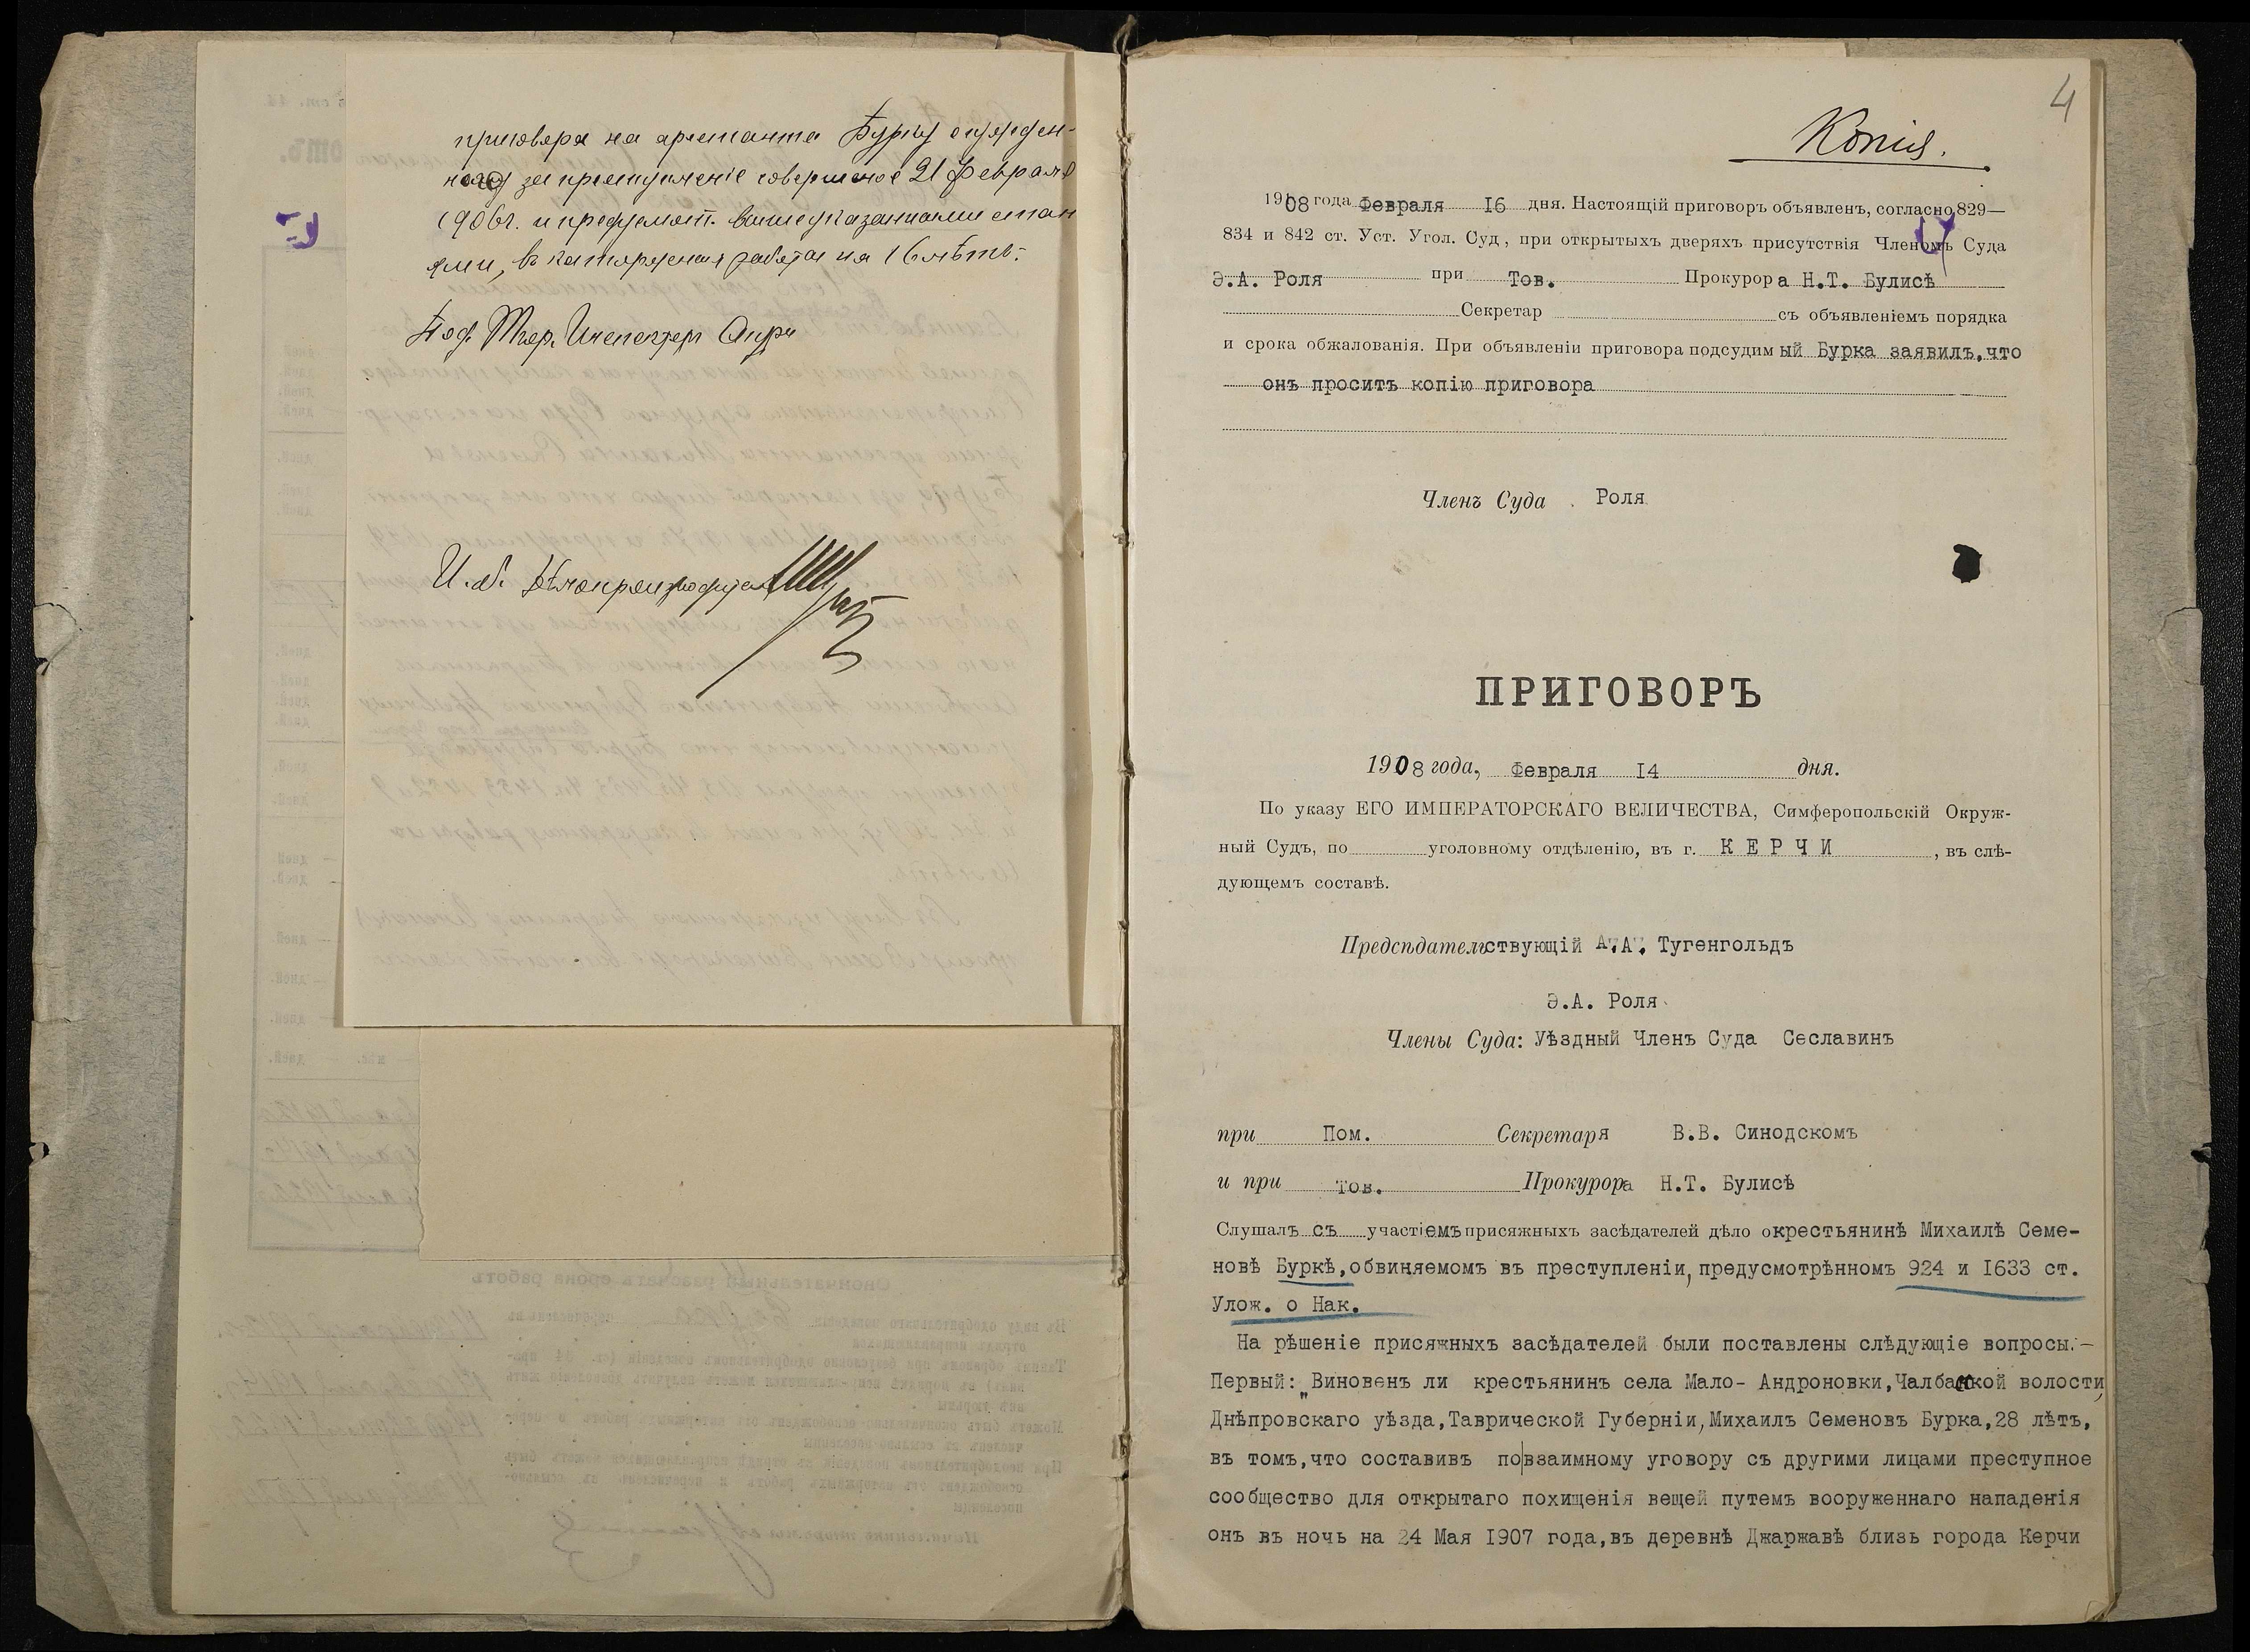 приговора на арестанта Бурку осужден-
наго за преступленіе совершеное 21 Февраля
1906г. и предусмот. вышеуказанными стат
ями, въ каторжныя работы на 16 лѣтъ.
Под. Тюр. Инспекторъ
И. д. Дѣлопроизводителя
4
Копія.
1908 года Февраля 16 дня. Настоящій приговоръ объявленъ, согласно 829—
834 и 842 ст. Уст. Угол. Суд, при открытыхъ дверяхъ присутствія Членомъ Суда
Э.А. Роля при Тов. Прокурора Н.Т. Булисѣ
Секретар съ объявленіемъ порядка
и срока обжалованія. При объявленіи приговора подсудимый Бурка заявилъ,что
онъ проситъ копію приговора
Членъ Суда Роля
ПРИГОВОРЪ
1908 года, Февраля 14 дня.
По указу ЕГО ИМПЕРАТОРСКАГО ВЕЛИЧЕСТВА, Симферопольскій Окруж-
ный Судъ, по уголовному отдѣленію, въ г. КЕРЧИ, въ слѣ-
дующемъ составѣ.
Предсѣдательствующій А.А. Тугенгольдъ
Э.А. Роля
Члены Суда: Уѣздный Членъ Суда Сеславинъ
при Пом. Секретаря В.В. Синодскомъ
и при Тов. Прокурора Н.Т. Булисѣ
Слушалъ съ участіемъ присяжныхъ засѣдателей дѣло окрестьянинѣ Михаилѣ Семе-
новѣ Буркѣ,обвиняемомъ въ преступленіи, предусмотрѣнномъ 924 и 1633 ст.
Улож. о Нак.
На рѣшеніе присяжныхъ засѣдателей были поставлены слѣдующіе вопросы:-
Первый: "Виновенъ ли крестьянинъ села Мало- Андроновки,Чалбаской волости,
Днѣпровскаго уѣзда,Таврической Губерніи,Михаилъ Семеновъ Бурка,28 лѣтъ,
въ томъ,что составивъ по|взаимному уговору съ другими лицами преступное
сообщество для открытаго похищенія вещей путемъ вооруженнаго нападенія
онъ въ ночь на 24 Мая 1907 года,въ деревнѣ Джаржавѣ близь города Керчи